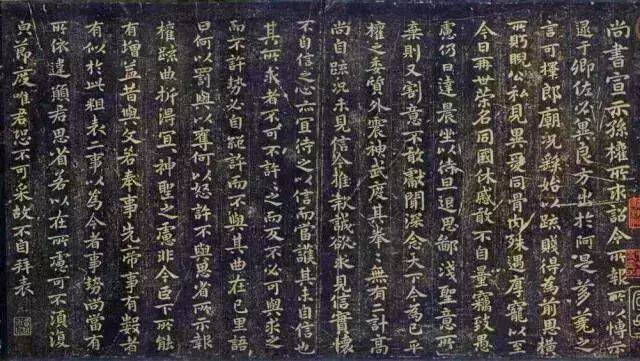 尚書宣示孫權所求詔令所報所以博示
逮于卿佐必冀良方出於阿是芻蕘之
言可擇郎廟況繇始以疏賤得為前恩橫
所眄睨公私見異愛同骨肉殊遇厚寵以至
今日再世榮名同國休慼敢不自量竊致愚
慮仍日達晨坐以待旦退思鄙淺聖意所
棄則又割意不敢獻聞深念天下今為已平
權之委質外震神武度其拳〻無有二計高
尚自疏況未見信今推款誠欲求見信實懷
不自信之心亦宜待之以信而當護其未自信也
其所求者不可不許〻之而反不必可與求之
而不許勢必自絕許而不與其曲在己里語
曰何以罰與以奪何以怒許不與思省所示報
權疏曲折得宜〻神聖之慮非今臣下所能
有增益昔與文若奉事先帝事有數者
有似於此粗表二事以為今者事勢尚當有
所依違願君思省若以在所慮可不須復
㒵節度唯君恐不可采故不自拜表